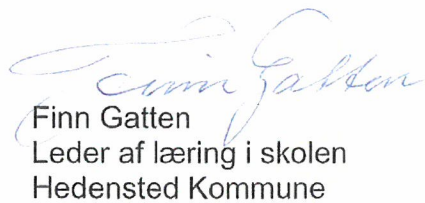 Finn Gatten
Finn Gatten
Leder af læring i skolen
Hedensted Kommune